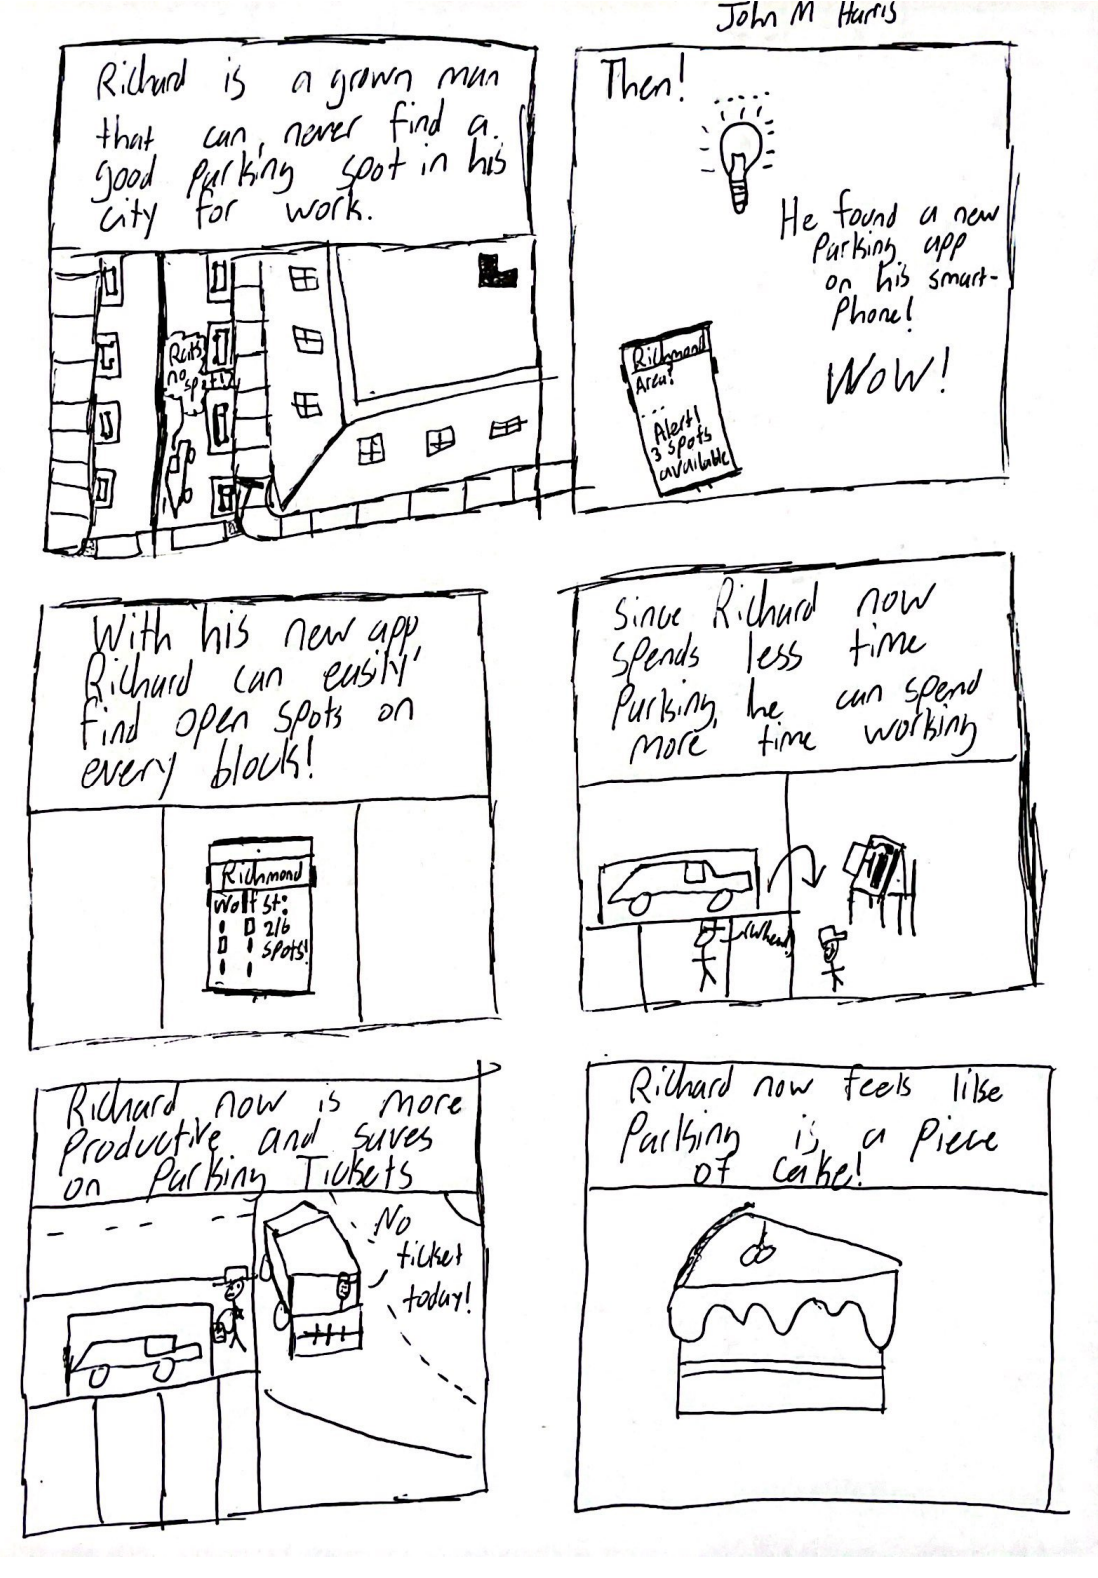 John M Harris
Richard is a grown man
that can never find a
good parking spot in his
city for work.
Rats
no
spots!
Then!
He found a new
Parking app
on his smart-
Phone!
WOW!
Richmond
Area!
...
Alert!
3 spots
available
With his new app,
Richard can easily
find open spots on
every block!
Richmond
Wolf St:
2/6
spots!
Since Richard now
spends less time
Parking, he can spend
more time working
Richard now is more
Productive and saves
on Parking Tickets
No
ticket
today!
Richard now feels like
Parking is a Piece
of cake!